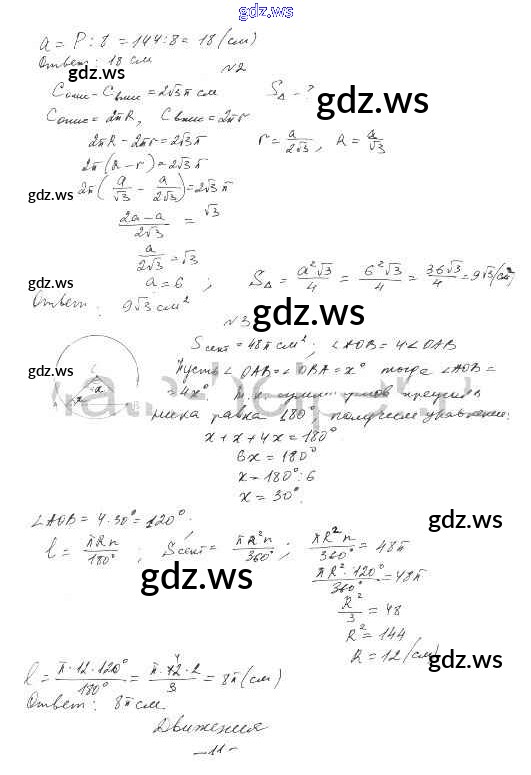 gdz.ws
a = P : 8 = 144 : 8 = 18 (см)
Ответ: 18 см
gdz.ws gdz.ws
№2
Cопис - Cвпис = 2√3π см S△ - ?
Cопис = 2πR, Cвпис = 2πr
2πR - 2πr = 2√3π r = a/2√3, R = a/√3
2π(R - r) = 2√3π
gdz.ws gdz.ws
2π(a/√3 - a/2√3) = 2√3π
(2a - a)/2√3 = √3
a/2√3 = √3
a = 6 ; S△ = a²√3/4 = 6²√3/4 = 36√3/4 = 9√3 (см²)
gdz.ws
Ответ: 9√3 см²
gdz.ws
№3
Sсект = 48π см²; ∠AOB = 4∠OAB
gdz.ws
Пусть ∠OAB = ∠OBA = x° тогда ∠AOB =
= 4x° т.к. сумма углов треуголь
ника равна 180° получим уравнение:
x + x + 4x = 180°
6x = 180°
x = 180° : 6
x = 30°.
gdz.ws
∠AOB = 4·30° = 120°.
gdz.ws
l = πRn/180° ; Sсект = πR²n/360° ; πR²n/360° = 48π
gdz.ws
πR²·120°/360° = 48π
R²/3 = 48
R² = 144
R = 12 (см)
gdz.ws gdz.ws
l = π·12·120°/180° = π·12·2/3 = 8π (см)
Ответ: 8π см.
gdz.ws
Движения
- 11 -
gdz.ws